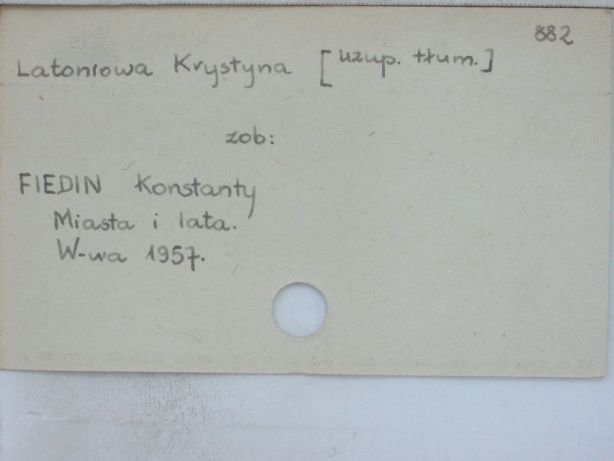 882
Latoniowa Krystyna [uzup. tłum.]
zob:
FIEDIN Konstanty
Miasta i lata.
W-wa 1957.